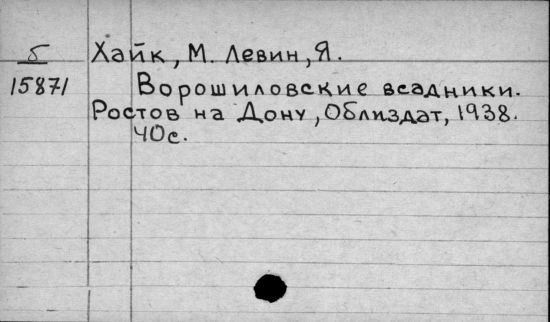 б Хайк, М. Левин, Я.
15871 Ворошиловские всадники.
Ростов на Дону, Облиздат, 1938.
40с.